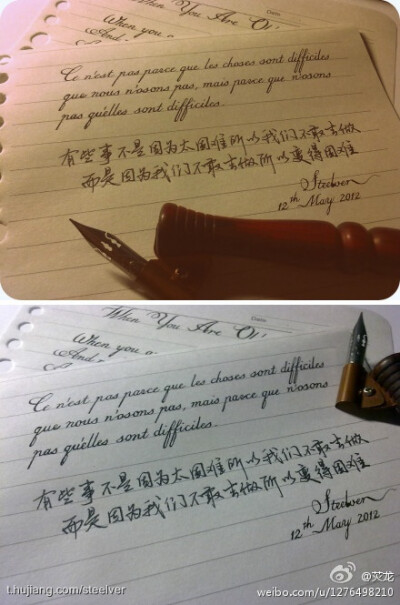 When You Are Ol
When you a
And
Ce n'est pas parce que les choses sont difficiles
que nous n'osons pas, mais parce que n'osons
pas qu'elles sont difficiles.
有些事不是因为太困难所以我们不敢去做
而是因为我们不敢去做所以变得困难
Steelven
12th May 2012
When You Are Ol
When you a
And
Ce n'est pas parce que les choses sont difficiles
que nous n'osons pas, mais parce que n'osons
pas qu'elles sont difficiles.
有些事不是因为太困难所以我们不敢去做
而是因为我们不敢去做所以变得困难
Steelven
12th May 2012
@荧龙
t.hujiang.com/steelver
weibo.com/u/1276498210